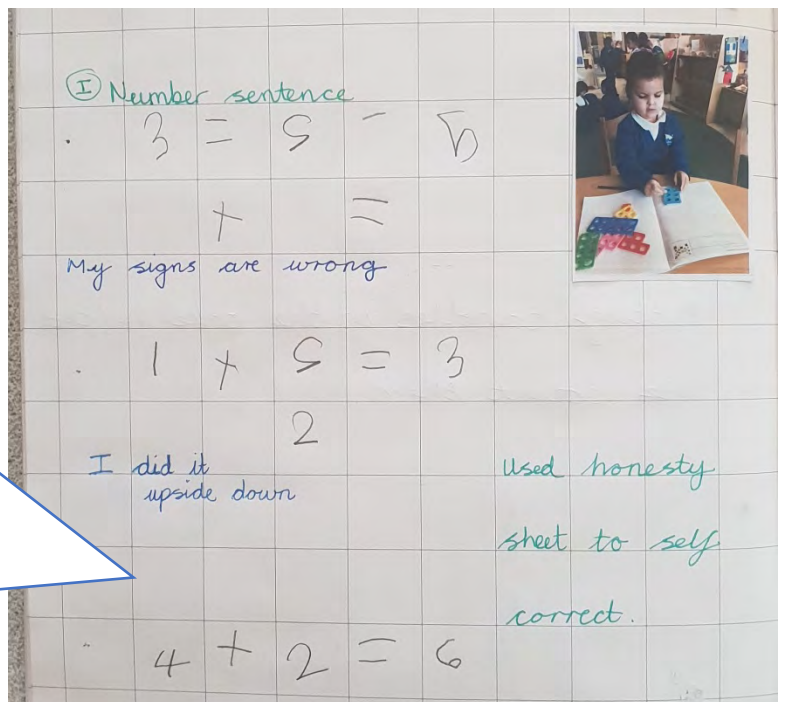 I Number sentence
3 = 2 - 5
+ =
My signs are wrong
1 + 2 = 3
2
I did it
upside down
Used honesty
sheet to self
correct.
4 + 2 = 6